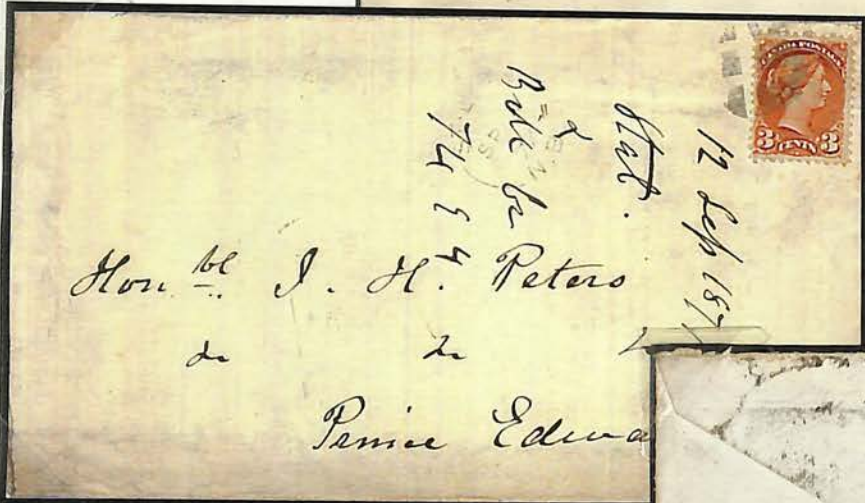 CANADA POSTAGE
3 CENTS 3
12 Sep 187
Stat.
&
74
Hon.ble J. H. Peters
&c &c
Prince Edwa